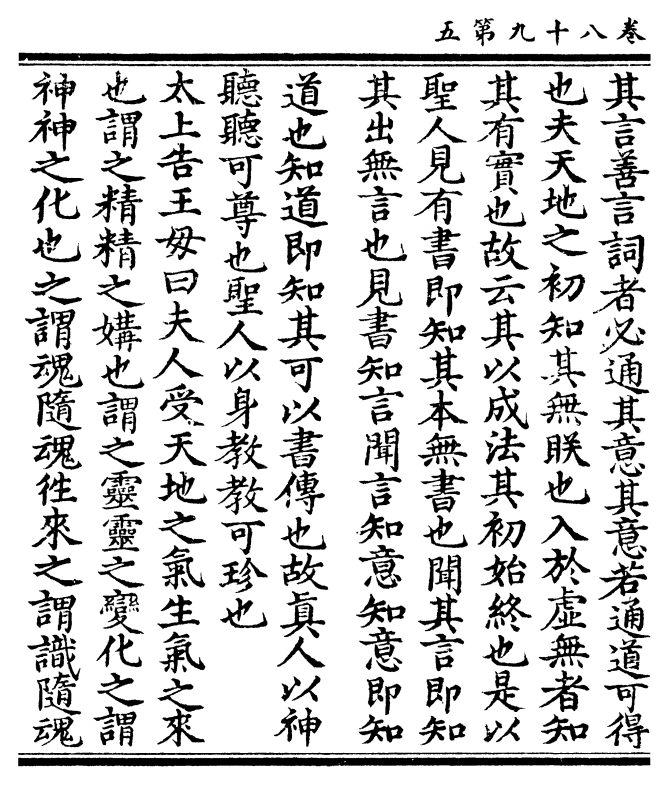 卷八十九第五
其言善言詞者必通其意其意若通道可得
也夫天地之初知其無朕也入於虛無者知
其有實也故云其以成法其初始終也是以
聖人見有書即知其本無書也聞其言即知
其出無言也見書知言聞言知意知意即知
道也知道即知其可以書傳也故真人以神
聽聽可尊也聖人以身教教可珍也
太上告王母曰夫人受天地之氣生氣之來
也謂之精精之媾也謂之靈靈之變化之謂
神神之化也之謂魂隨魂徃來之謂識隨魂